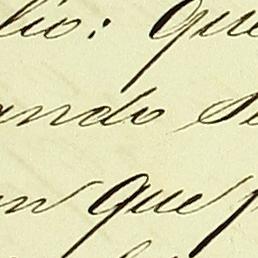 lio: que
ando se
an que p